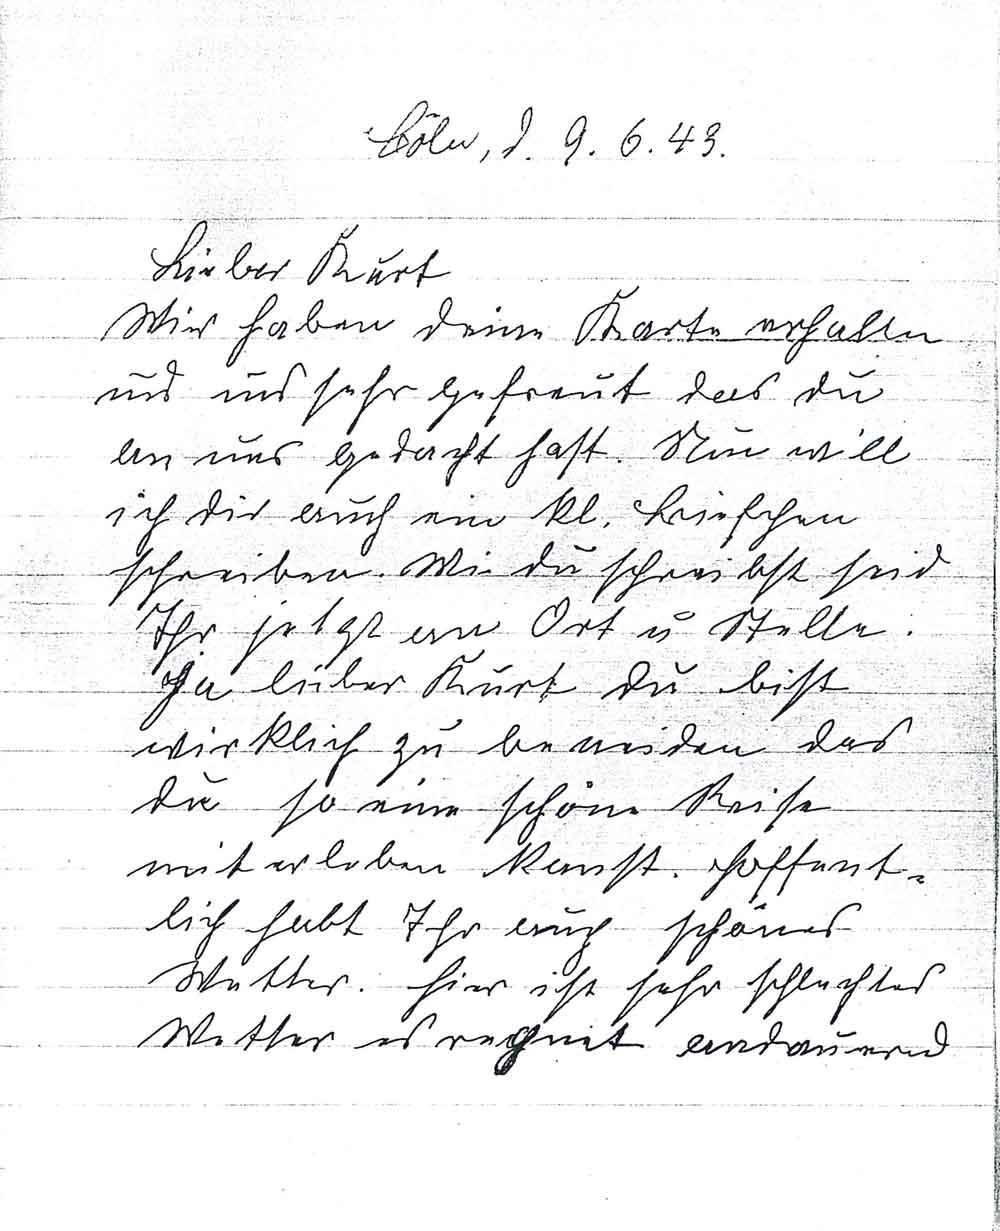 Cöln, d. 9. 6. 43.
Lieber Kurt
Wir haben deine Karte erhalten
und uns sehr gefreut das du
an uns gedacht hast. Nun will
ich dir auch ein kl. Briefchen
schreiben. Wie du schreibst seid
Ihr jetzt an Ort u Stelle.
Ja lieber Kurt du bist
wirklich zu beneiden das
du so eine schöne Reise
miterleben kanst. Hoffent-
lich habt Ihr auch schönes
Wetter. Hier ist sehr schlechtes
Wetter es regnet andauernd